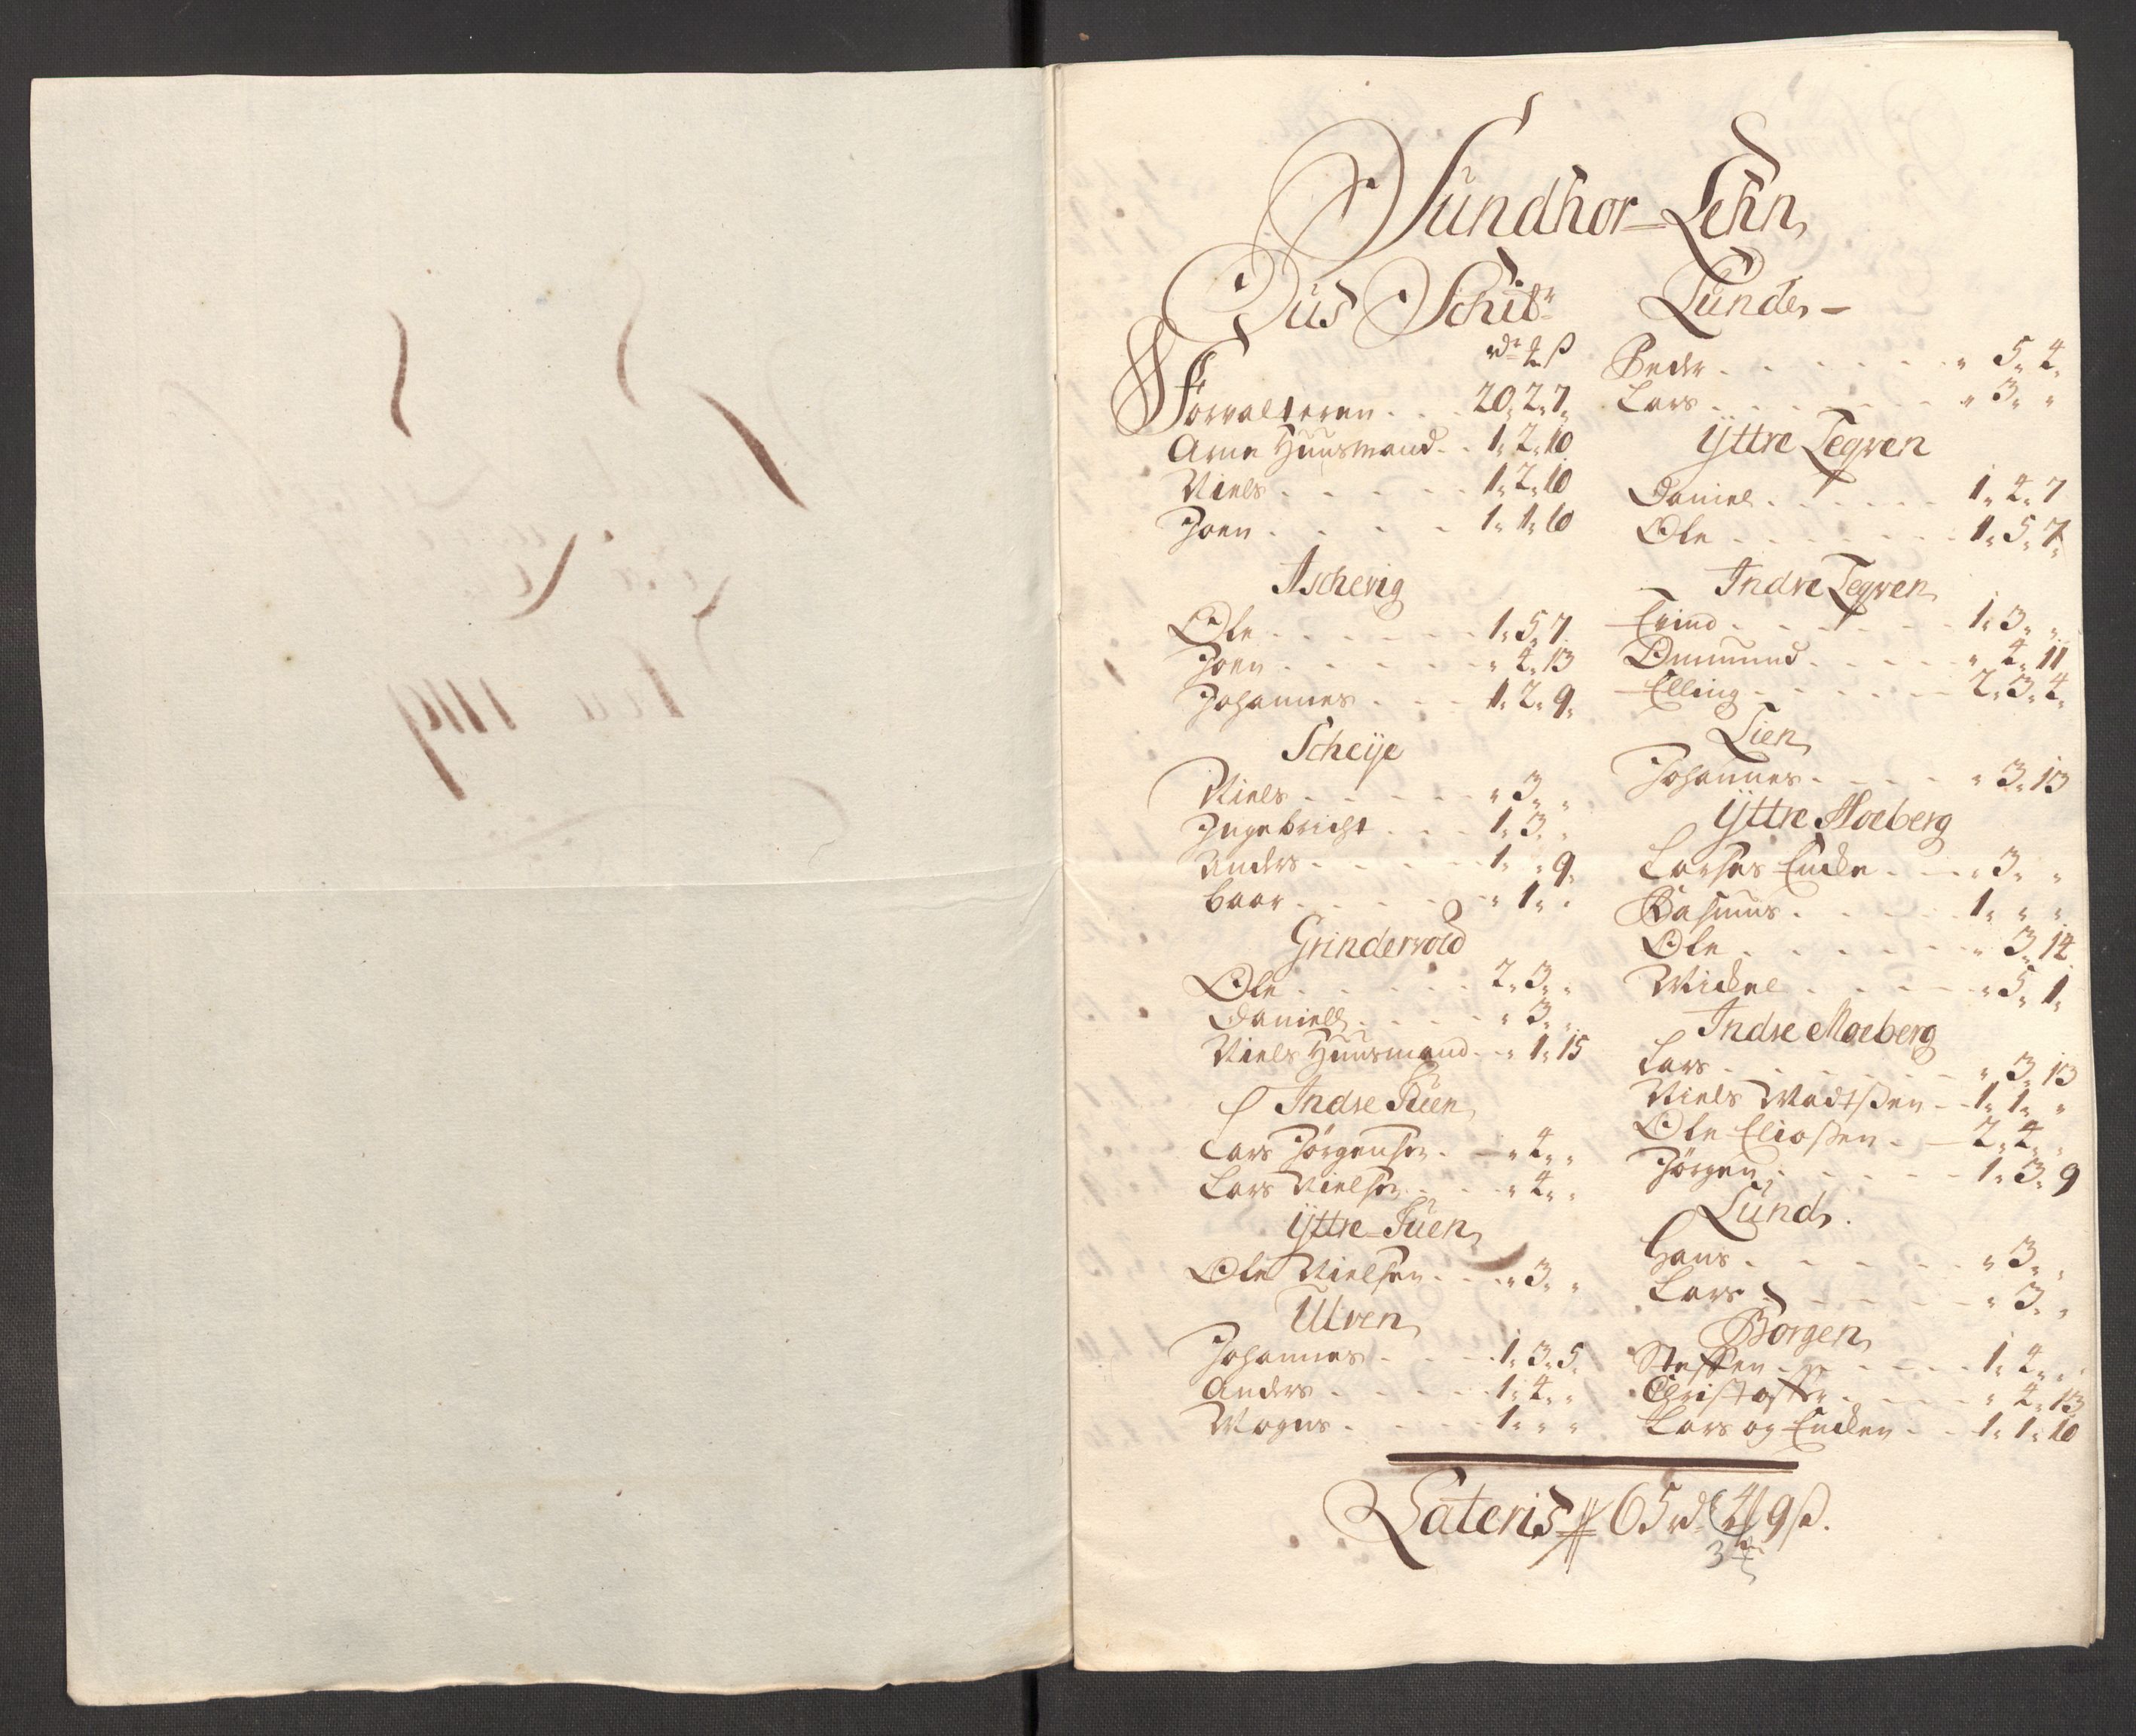 Sundhor-Lehn
Ous Schibr
rdr ₰ ß
Forvalteren . . . 20„ 2„ 7„
Arne Huusmand . . 1„ 2„ 10
Niels . . . . . 1„ 2„ 10
Joen . . . . 1„ 1„ 10
Ascherig
Ole . . . . . . 1„ 5„ 7
Joen . . . . . „ 4„ 13
Johannes . . . 1„ 2„ 9„
Scheije
Niels . . . . . „ 3„ „
Ingebricht . . . 1„ 3„ „
Anders . . . . . 1„ „ 9„
baar . . . . . „ 1„ „
Grindervold
Ole . . . . . 2„ 3„ „
Daniell . . . . „ 3„ „
Niels Huusmand . . „ 1„ 15
Indre Tuen
Lars Jørgensen . — „ 4„ „
Lars Nielsen . . . „ 4„ „
Yttre Tuen
Ole Nielsen . . . „ 3„ „
Ulven
Johannes . . . 1„ 3„ 5„
Anders . . . . . 1„ 4„ „
Mogns . . . . 1„ „ „
Lunde –
Peder . . . . . . „ 5„ 4„
Lars . . . . . . „ 3„ „
Yttre Tegven
Daniel . . . . . . 1„ 4„ 7
Ole . . . . . . . 1„ 5„ 7„
Indre Tegven
Eiind . . . . . . 1„ 3„ „
Ommund . . . . . „ 4„ 11
Elling . . . . . . 2„ 3„ 4„
Lien
Johannes . . . . . „ 3„ 13
Yttre Moeberg
Larses Encke . . . „ 3„ „
Rasmus . . . . . 1„ „ „
Ole . . . . . . „ 3„ 14
Mickel . . . . . „ 5„ 1„
Indre Moeberg
Lars . . . . . . „ 3„ 13
Niels Madtßen . . 1„ 1„ „
Ole Elioßen . — 2„ 4„ „
Jørgen . . . . . 1„ 3„ 9
Lund
Hans . . . . . . „ 3„ „
Lars . . . . . „ 3„ „
Borgen
Steffen . . . . . 1„ 4„ „
Christoffer . . . . . „ 4„ 13
Lars og Encken . . 1„ 1„ 10
Lateris 65 rd 4 9ß.
3